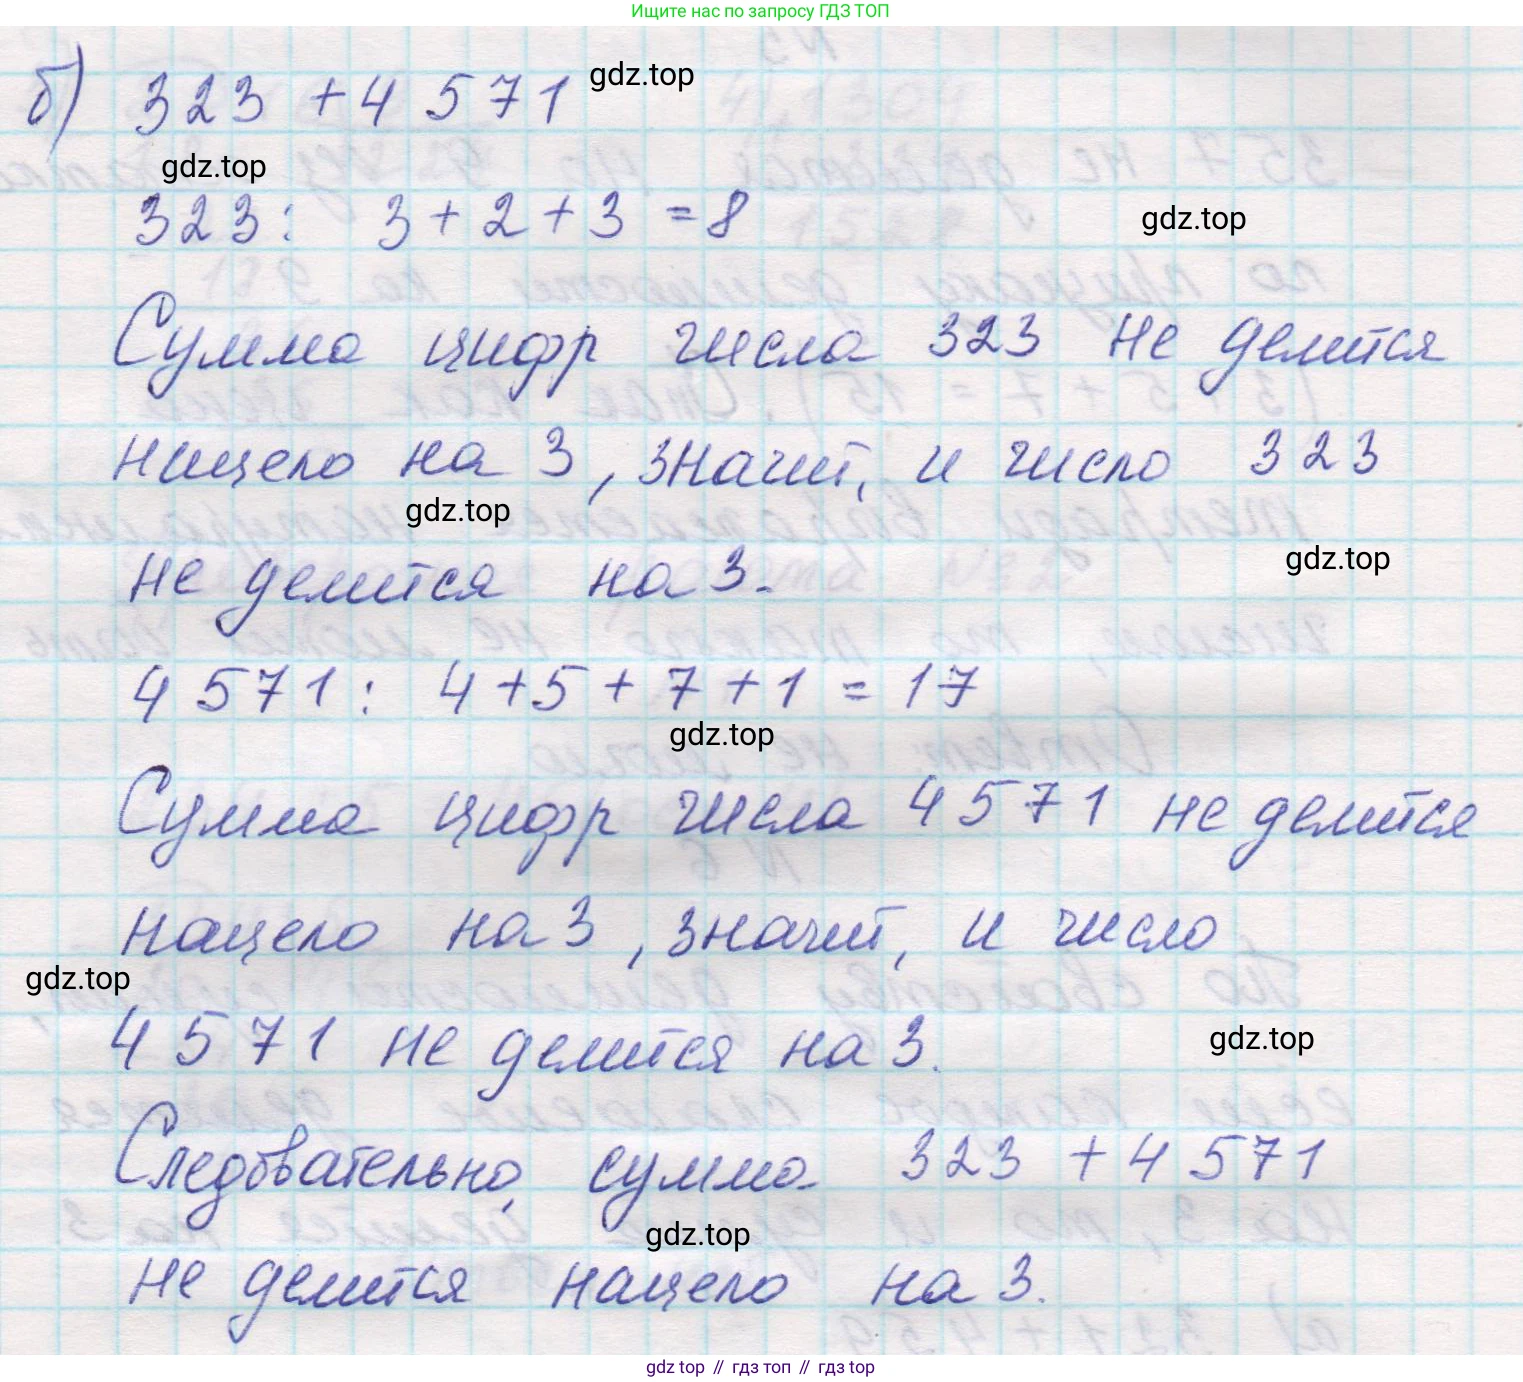 Ищите нас по запросу ГДЗ ТОП
б) 323 + 4 571
gdz.top
gdz.top
323: 3 + 2 + 3 = 8
gdz.top
Сумма цифр числа 323 не делится
нищело на 3, значит, и число 323
gdz.top
gdz.top
не делится на 3.
4 571 : 4 + 5 + 7 + 1 = 17
gdz.top
Сумма цифр числа 4 571 не делится
нацело на 3, значит, и число
gdz.top
4 571 не делится на 3.
gdz.top
Следовательно, сумма 323 + 4 571
gdz.top
не делится нацело на 3.
gdz.top // гдз топ // гдз top